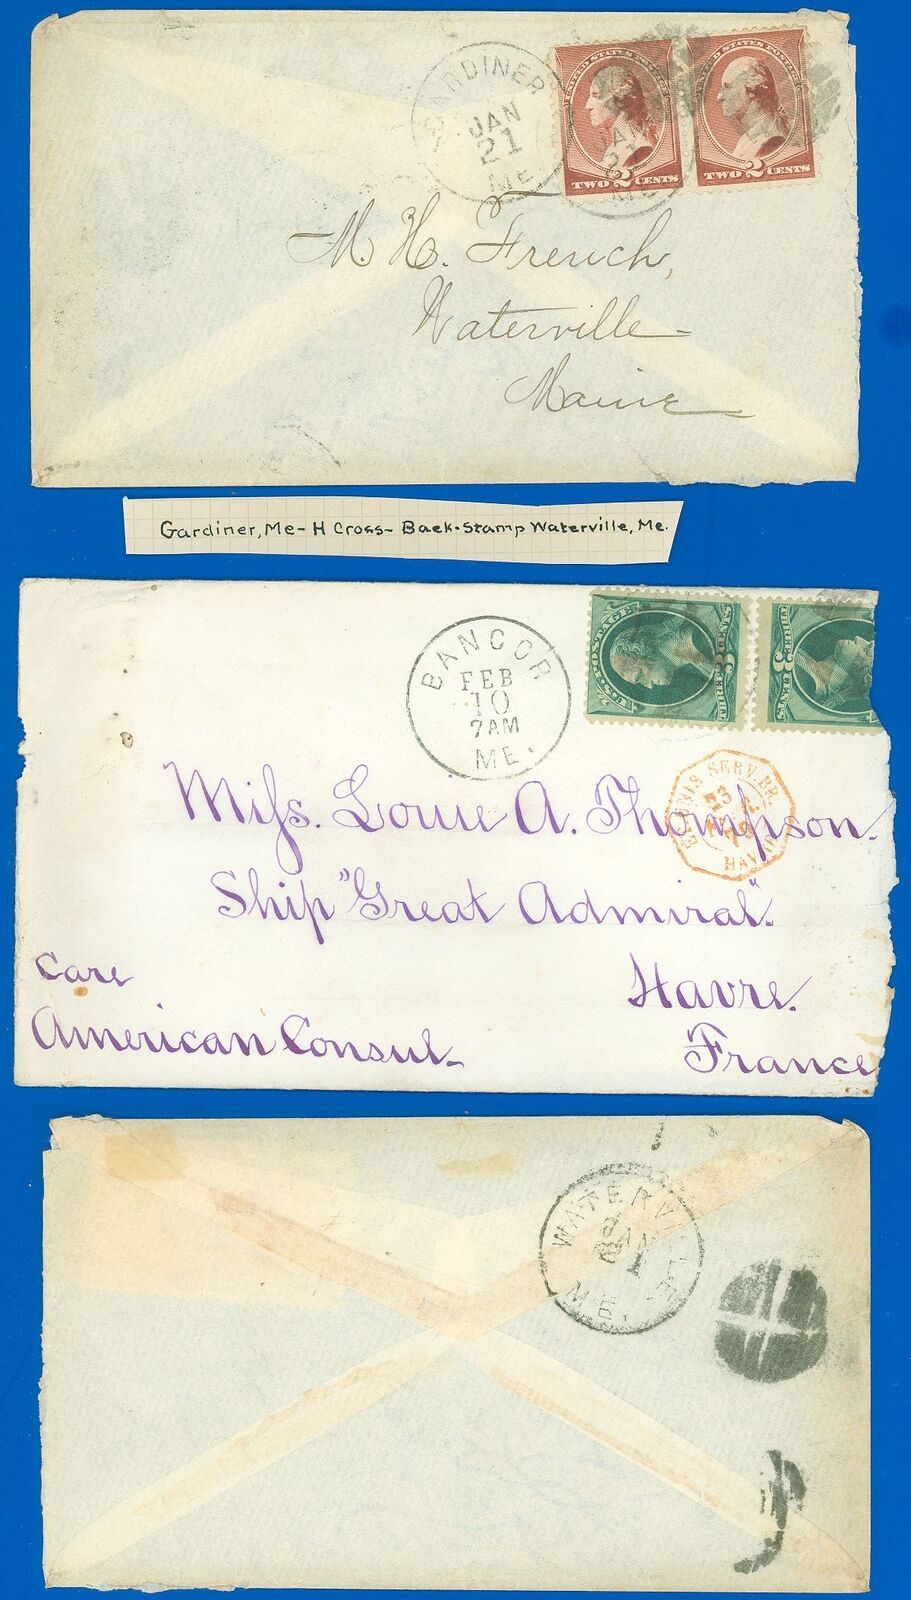 GARDINER
JAN
21
ME
UNITED STATES POSTAGE
TWO 2 CENTS
UNITED STATES POSTAGE
TWO 2 CENTS
JAN
21
ME
M. H. French,
Waterville
Maine
Gardiner, Me - H Cross - Back. Stamp Waterville, Me.
BANGOR
FEB
10
7AM
ME.
U.S. POSTAGE
THREE 3 CENTS
THREE 3 CENTS
SERV. BR.
23
HAV
Miss. Louie A. Thompson.
Ship "Great Admiral".
Care
Havre.
American Consul
France
WATERVILLE
JAN
21
ME.